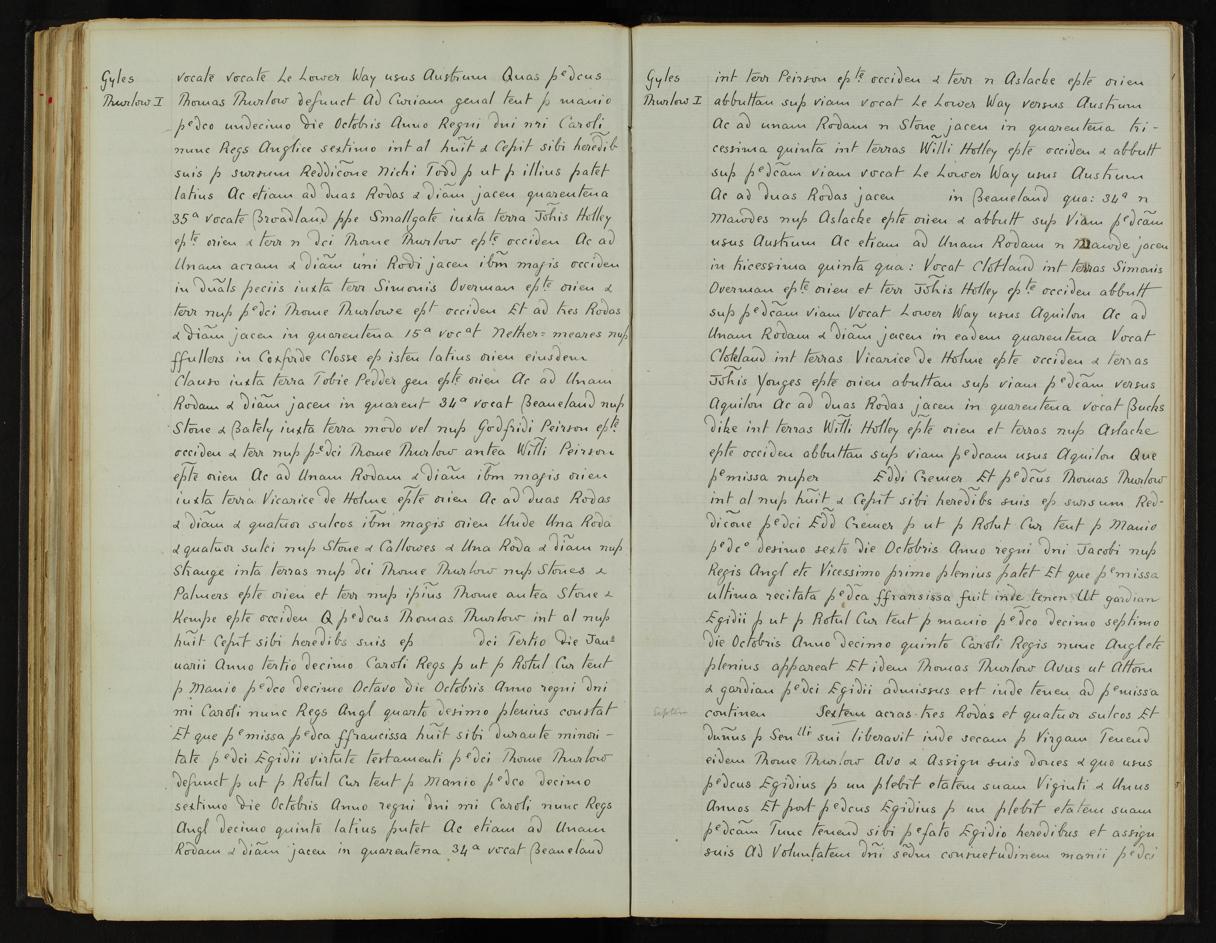 Gyles
Thurlow I
vocate vocate Le Lower Way usus Austrum Quas pedcus
Thomas Thurlow defunct Ad Curiam genal tent p manio
pedco undecimo die Octobris Anno Regni dni nri Caroli
nunc Regs Anglice sextimo int al huit & Cepit sibi heredib
suis p sursum Reddicone Nichi Todd p ut p illius patet
latius Ac etiam ad duas Rodas & diam jacen quarentena
35a vocate Broadland ppe Smallgate iuxta terra Johis Holley
epte orien & terr n dci Thome Thurlow epte occiden Ac ad
Unam acram & diam uni Rodi jacen ibm magis occiden
in duals peciis iuxta terr Simonis Overman epte orien &
terr nup pedci Thome Thurlowe ept occiden Et ad tres Rodas
& diam jacen in quarentena 15a vocat Nether=meares nup
ffullers in Coxforde Closse ep isten latius orien eiusdem
Clauso iuxta terra Tobie Pedder gen epte orien Ac ad Unam
Rodam & diam jacen in quarent 34a vocat Beaneland nup
Stone & Bately iuxta terra modo vel nup Godfridi Peirson epte
occiden & terr nup pedci Thome Thurlow antea Willi Peirson
epte orien Ac ad Unam Rodam & diam ibm magis orien
iuxta terra Vicarice de Holme epte orien Ac ad duas Rodas
& diam & quatuor sulcos ibm magis orien Unde Una Roda
& quatuor sulci nup Stone & Callowes & Una Roda & diam nup
Strange inta terras nup dci Thome Thurlow nup Stones &
Palmers epte orien et terr nup ipius Thome antea Stone &
Kempe epte occiden Q pedcus Thomas Thurlow int al nup
huit Cepit sibi heredibs suis ep dci Tertio die Jan-
uarii Anno tertio decimo Caroli Regs p ut p Rotul Cur tent
p Manio pedco decimo Octavo die Octobris Anno regni dni
nri Caroli nunc Regs Angl quarto desimo plenius constat
Et que pemissa pedca ffrancissa huit sibi durante minori-
tate pedci Egidii virtute testamenti pedci Thome Thurlow
defunct p ut p Rotul Cur tent p Manio pedco decimo
sextimo die Octobris Anno regni dni nri Caroli nunc Regs
Angl decimo quinto latius putet Ac etiam ad Unam
Rodam & diam jacen in quarentena 34a vocat Beaneland
Gyles
Thurlow I
int terr Peirson epte occiden & terr n Aslacke epte orien
abbuttan sup viam vocat Le Lower Way versus Austrum
Ac ad unam Rodam n Stone jacen in quarentena tri-
cessima quinta int terras Willi Holley epte occiden & abbutt
sup pedcam viam vocat Le Lower Way usus Austrum
Ac ad duas Rodas jacen in Beaneland qua: 34a n
Mawdes nup Aslacke epte orien & abbutt sup Viam pedcam
usus Austrum Ac etiam ad Unam Rodam n Mawde jacen
in tricessima quinta qua: Vocat Clotland int terras Simonis
Overman epte orien et terr Johis Holley epte occiden abbutt
sup pedcam viam Vocat Lower Way usus Aquilon Ac ad
Unam Rodam & diam jacen in eadem quarentena Vocat
Cloteland int terras Vicarice de Holme epte occiden & terras
Johis Yonges epte orien abuttan sup viam pedcam versus
Aquilon Ac ad duas Rodas jacen in quarentena vocat Bucks
dike int terras Willi Holley epte orien et terras nup Aslacke
epte occiden abbuttan sup viam pedcam usus Aquilon Que
pemissa nuper Eddi Cremer Et pedcus Thomas Thurlow
int al nup huit & Cepit sibi heredibs suis ep sursum Red-
dicone pedci Edd Cremer p ut p Rotul Cur tent p Manio
pedco desimo sexto die Octobris Anno regni dni Jacobi nup
Regis Angl etc Vicessimo primo plenius patet Et que pemissa
ultima recitata pedca ffransissa fuit inde tenen Ut gardian
Egidii p ut p Rotul Cur tent p manio pedco decimo septimo
die Octobris Anno decimo quinto Caroli Regis nunc Angl etc
plenius appareat Et idem Thomas Thurlow Avus ut Attorn
& gardian pedci Egidii admissus est inde tenen ad pemissa
continen Sextem acras tres Rodas et quatuor sulcos Et
dunus p Senlli sui liberavit inde secam p Virgam Tenend
eidem Thome Thurlow Avo & Assign suis donec & quo usus
pedcus Egidius p un plebit etatem suam Viginti & Unus
Annos Et port pedcus Egidius p un plebit etatem suam
pedcam Tunc tenend sibi pefato Egidio heredibus et assign
suis Ad Voluntatem dni sedm consuetudinem manii pedci